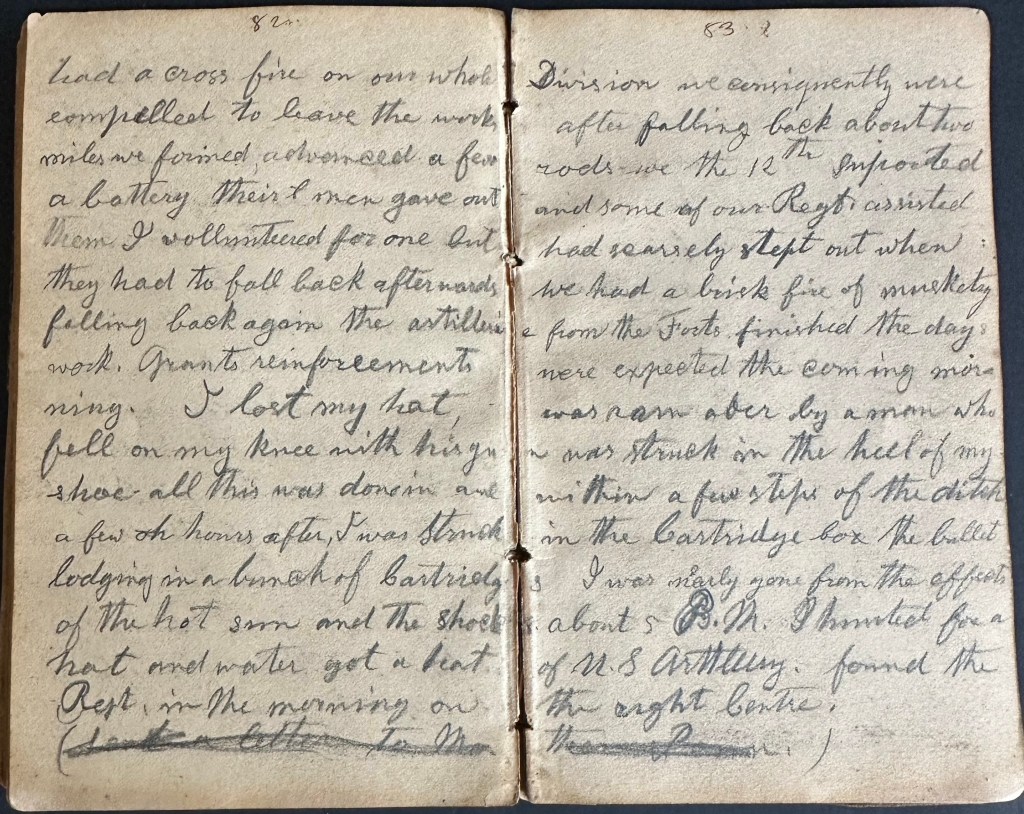 82. 83.
had a cross fire on our whole Division we consiquently were
compelled to leave the works after falling back about two
miles we formed, advanced a few rods - we the 12th suported
a battery their men gave out and some of our Regt assisted
them I vollunteered for one but had scarsely stept out when
they had to fall back afterwards we had a brisk fire of musketry
falling back again the artillerie from the Forts finished the days
work. Grants reinforcements were expected the coming mor-
ning. I lost my hat, was ran over by a man who
fell on my knee with his gun was struck in the heel of my
shoe - all this was done in and within a few steps of the ditch
a few hours after, I was struck in the Cartridge box the bullet
lodging in a bunch of Cartridges I was nearly gone from the effects
of the hot sun and the shock. about 5 P.M. I hunted for a
hat and water got a hat of U.S Arttllery. found the
Regt. in the morning on the right Centre.
(sent a letter to )